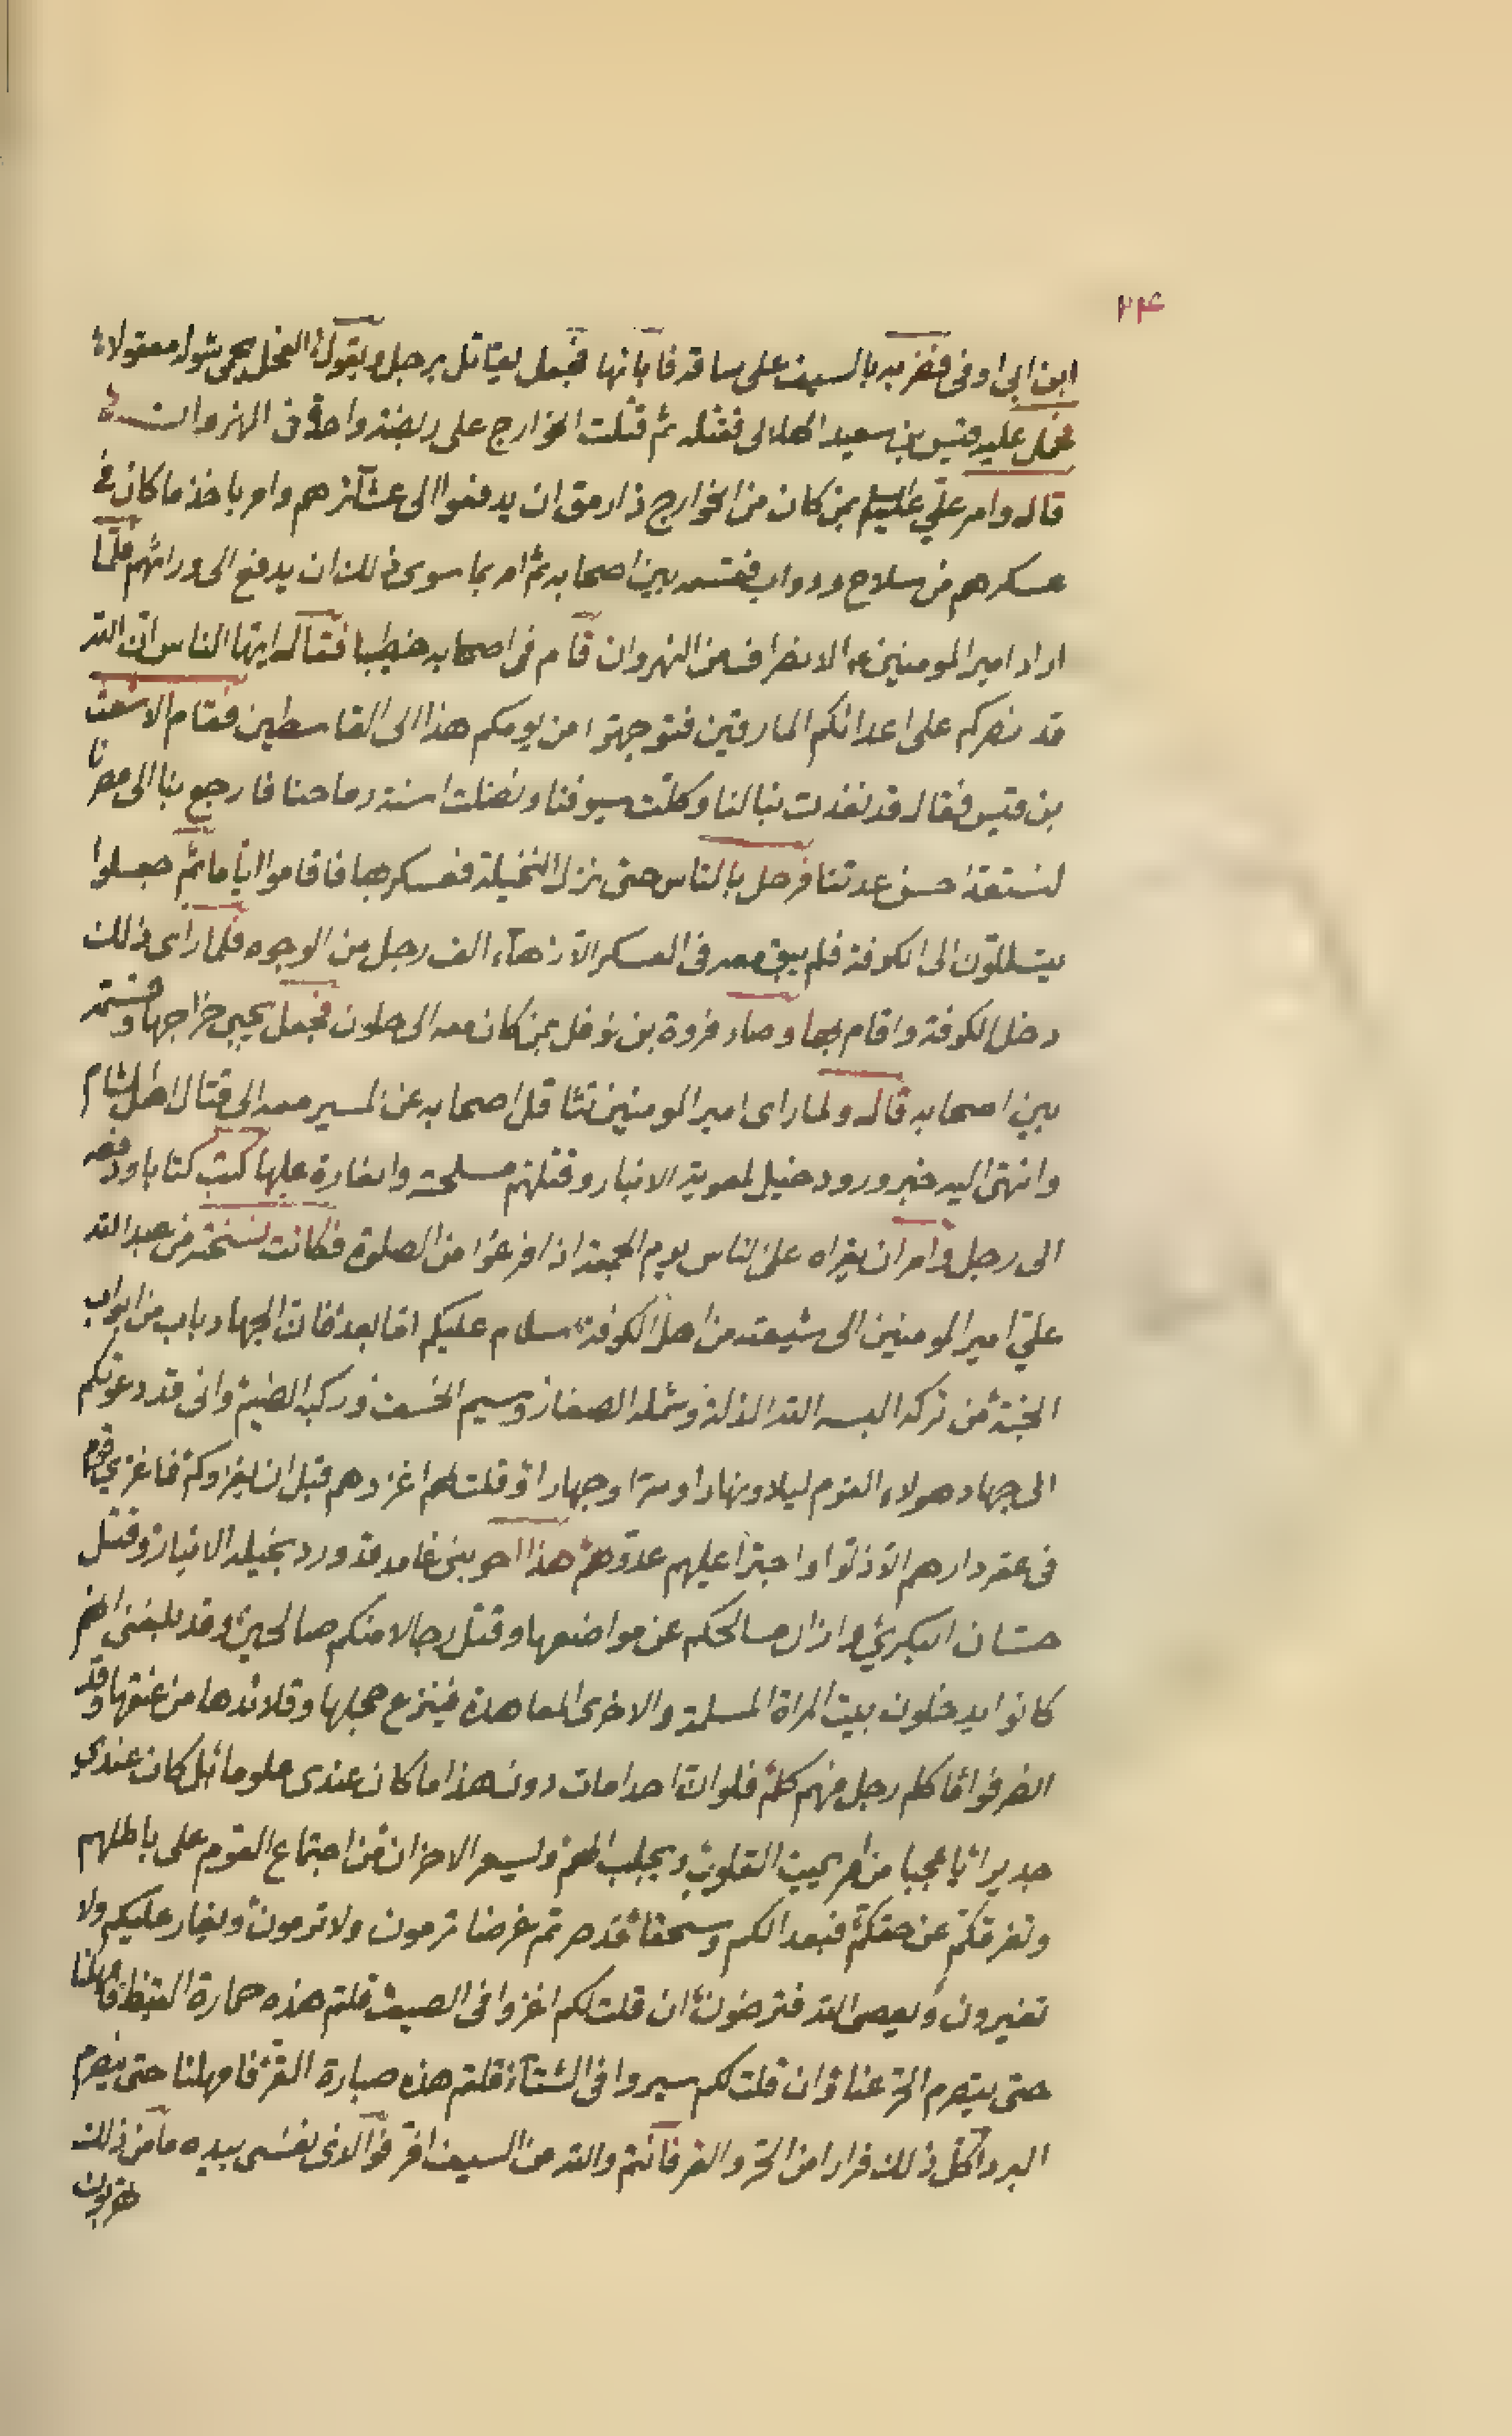 ٢٣۴
ابن ابى اوفى فضربه بالسيف على ساقه فابانها فجعل يقاتل برجل ويقول الفحل يحمى شوله معقولا
فحمل عليه قيس بن سعيد الهلالى فقتله ثم قتلت الخوارج على ربضة واحدة فى النهروان
قال وامر علي عليه السلم بمن كان من الخوارج ذا رمق ان يدفعوا الى عشآئرهم وامر باخذ ما كان فى
عسكرهم من سلاح ودواب فقسمه بين اصحابه ثم امر بما سوى ذلك ان يدفع الى وراثهم فلما
اراد امير المومنين ء الانصراف من النهروان قام فى اصحابه خطيبا فقال ايها الناس ان الله
قد نصركم على اعدائكم المارقين فتوجهوا من يومكم هذا الى القاسطين فقام الاشعث
بن قيس فقال قد نفذت نبالنا وكلت سيوفنا ونصلت اسنة رماحنا فارجع بنا الى مصرنا
لنستعد حسن عدتنا فرحل بالناس حتى نزل النخيلة فعسكر بها فاقاموا اياما ثم جعلوا
يتسللون الى الكوفة فلم يبق معه فى العسكر الا زهآء الف رجل من الوجوه فلما راى ذلك
دخل الكوفة واقام بها وصار فروة بن نوفل بمن كان معه الى حلون فجعل يجبى خراجها وقسمه
بين اصحابه قال ولما راى امير المومنين تثاقل اصحابه عن المسير معه الى قتال اهل الشام
وانتهى اليه خبر ورود خيل لمعوية الانبار وقتلهم مسلحته والغارة عليها كتب كتابا ودفعه
الى رجل وامر ان يقراه على الناس يوم الجمعة اذا فرغوا من الصلوة فكانت نسخته من عبد الله
علي امير المومنين الى شيعته من اهل الكوفة سلام عليكم اما بعد فان الجهاد باب من ابواب
الجنة من تركه البسه الله الذلة وشمله الصغار وسيم الخسف وركب الضيم وانى قد دعوتكم
الى جهاد هولاء القوم ليلا ونهارا وسرا وجهارا وقلت لكم اغزوهم قبل ان يغزوكم فما غزي قوم
فى عقر دارهم الا ذلوا واجترا عليهم عدوهم هذا اخو بنى غامد قد ورد بخيله الانبار وقتل
حسان البكري وازال مسالحكم عن مواضعها وقتل رجالا منكم صالحين وقد بلغنى انهم
كانوا يدخلون بيت المراة المسلمة والاخرى المعاهدة فينزع حجلها وقلائدها من عنقها وقد
انصرفوا ما كلم رجل منهم كلم فلو ان احدا مات دون هذا ما كان عندى ملوما بل كان عندى
جديرا يا عجبا من امر يميت القلوب ويجلب الهم ويسعر الاحزان من اجتماع القوم على باطلهم
وتفرقكم عن حقكم فبعدا لكم وسحقا قد صرتم غرضا ترمون ولا ترمون ويغار عليكم ولا
تغيرون ويعصى الله فترضون ان قلت لكم اغزوا فى الصيف قلتم هذه حمارة القيظ فامهلنا
حتى ينصرم الحر عنا وان قلت لكم سيروا فى الشتآء قلتم هذه صبارة القر فامهلنا حتى ينصرم
البرد اكل ذلك فرارا من الحر والقر فانتم والله من السيف افر فوالذى نفسى بيده ما من ذلك
تهربون